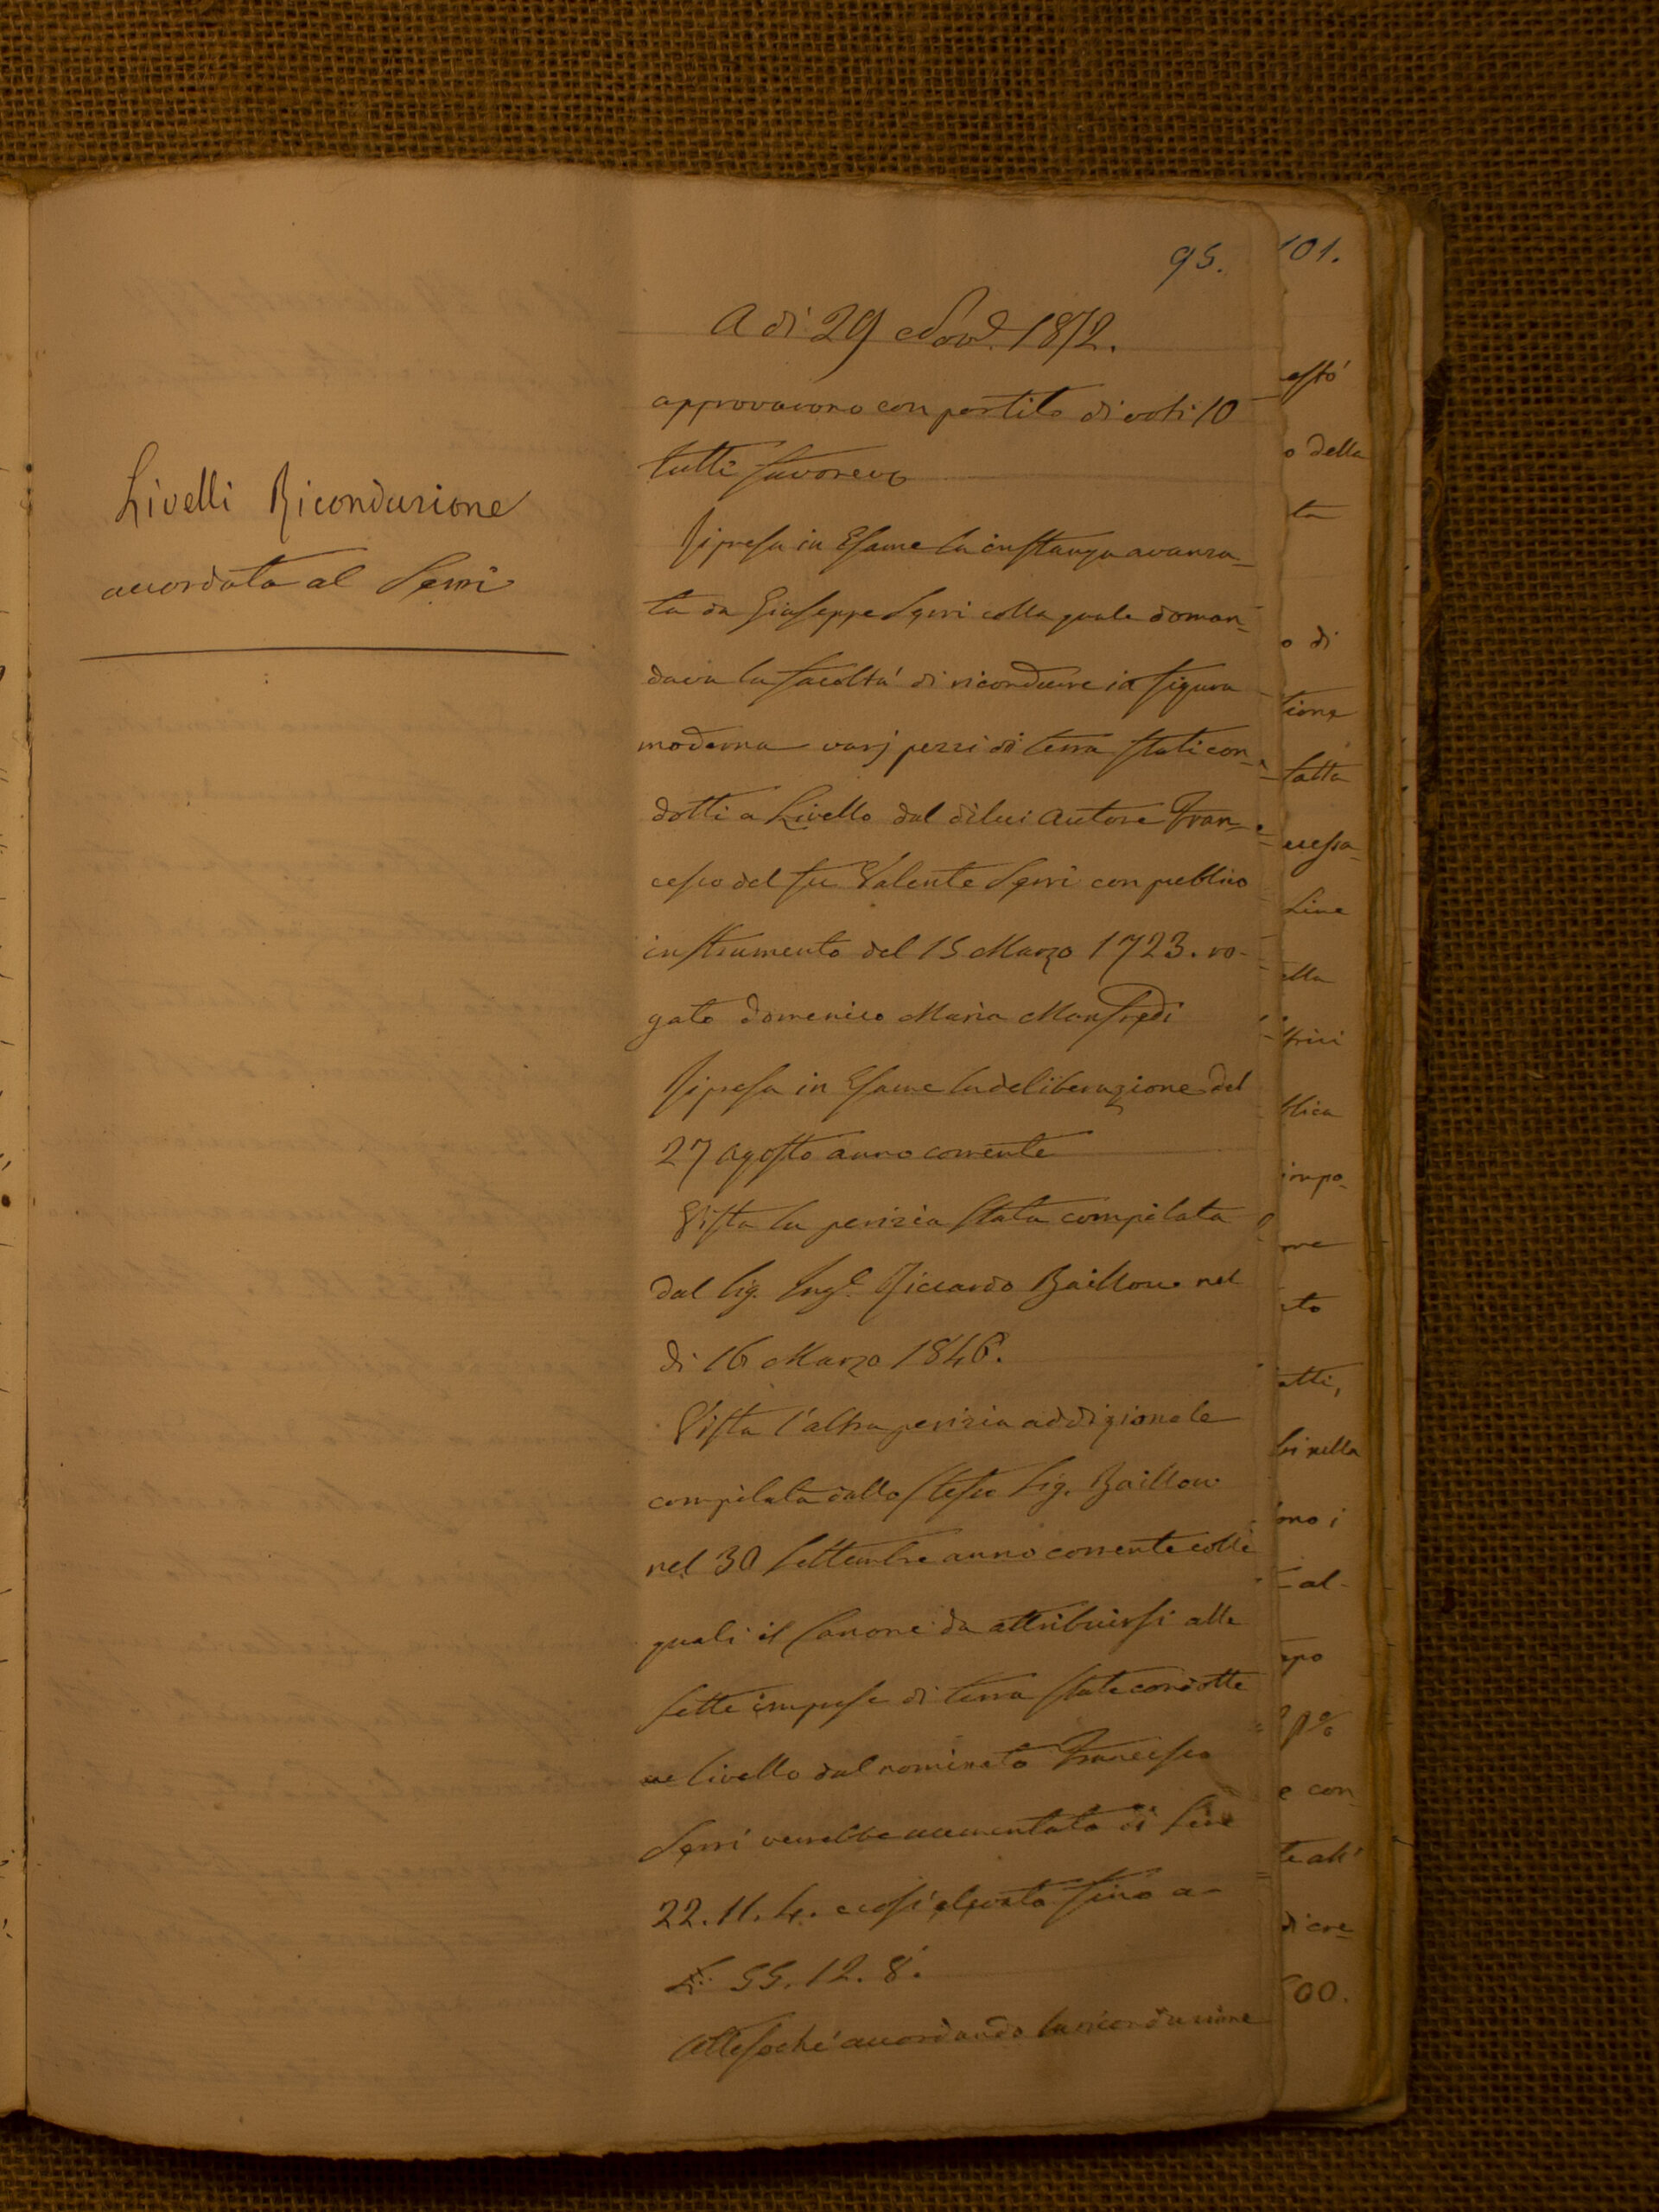 95.
101.
A di 29 Nov.e 1872.
approvarono con partito di voti 10
tutti favorevo
Livelli Riconduzione
accordata al Serri
Ripresa in Esame la instanza avanza-
ta da Giuseppe Serri colla quale doman-
dava la facoltà di ricondurre in figura
moderna varj pezzi di terra stati con-
dotti a Livello dal dilui Autore Fran-
cesco del fu Valente Serri con pubblico
instrumento del 15 Marzo 1723. ro-
gato Domenico Maria Manfredi
Ripresa in Esame la deliberazione del
27 Agosto anno corrente
Vista la perizia stata compilata
dal Sig. Ing.e Riccardo Baillou nel
di 16 Marzo 1846.
Vista l'altra perizia addizionale
compilata dallo stesso Sig. Baillou
nel 30 Settembre anno corrente colle
quali il Canone da attribuirsi alle
sette imprese di terra state condotte
a livello dal nominato Francesco
Serri verrebbe aumentato di Lire
22. 11. 4. e così elevato fino a
L. 55. 12. 8.
Attesochè accordando la riconduzione
o della
ta
o di
tione
tatta
Line
ella
blica
impo-
me
ato
atti,
bi nella
ono i
al-
po
e con-
te all'
di cre-
500.